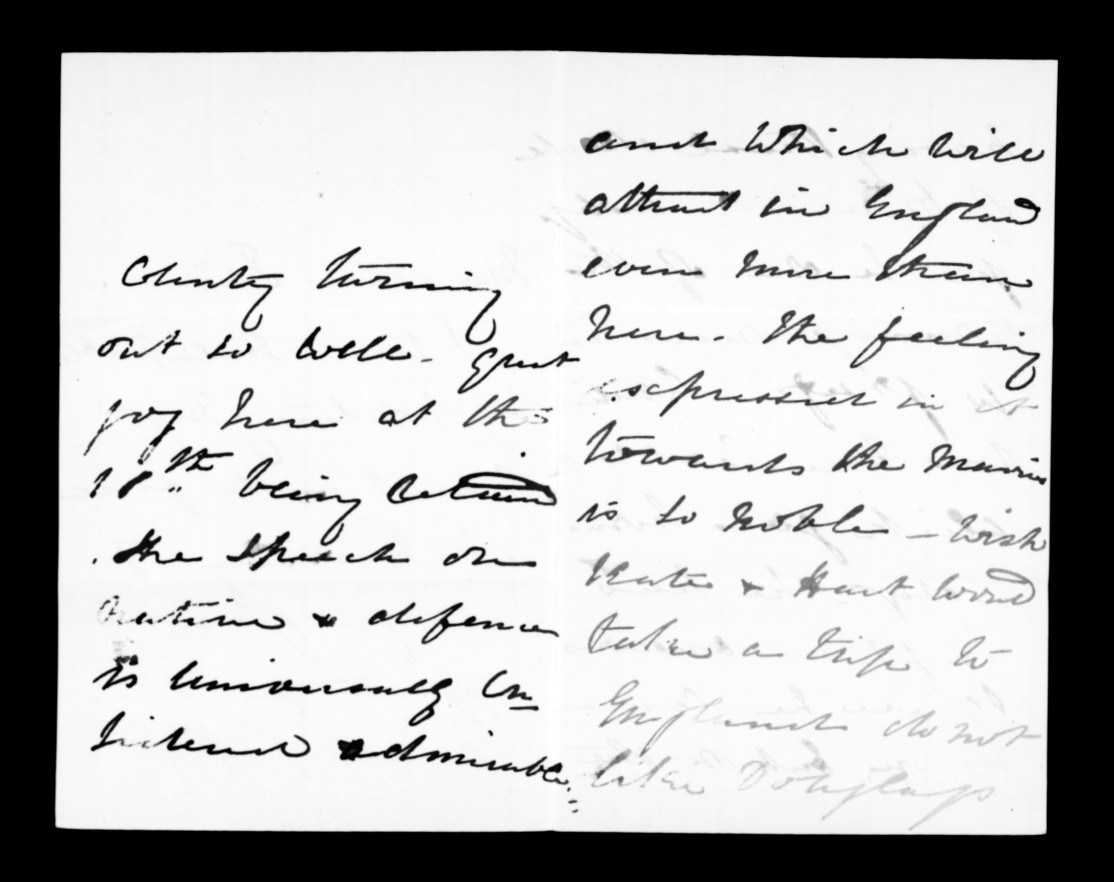 County turning
out so well. Great
joy here at the
18th being retained
. The speech on
native & defence
is universally con
sidered admirable
and which will
attract in England
even more than
here. The feeling
expressed in it
towards the Maories
is so noble – wish
Kate & Hart would
take a trip to
England do not
like Douglas